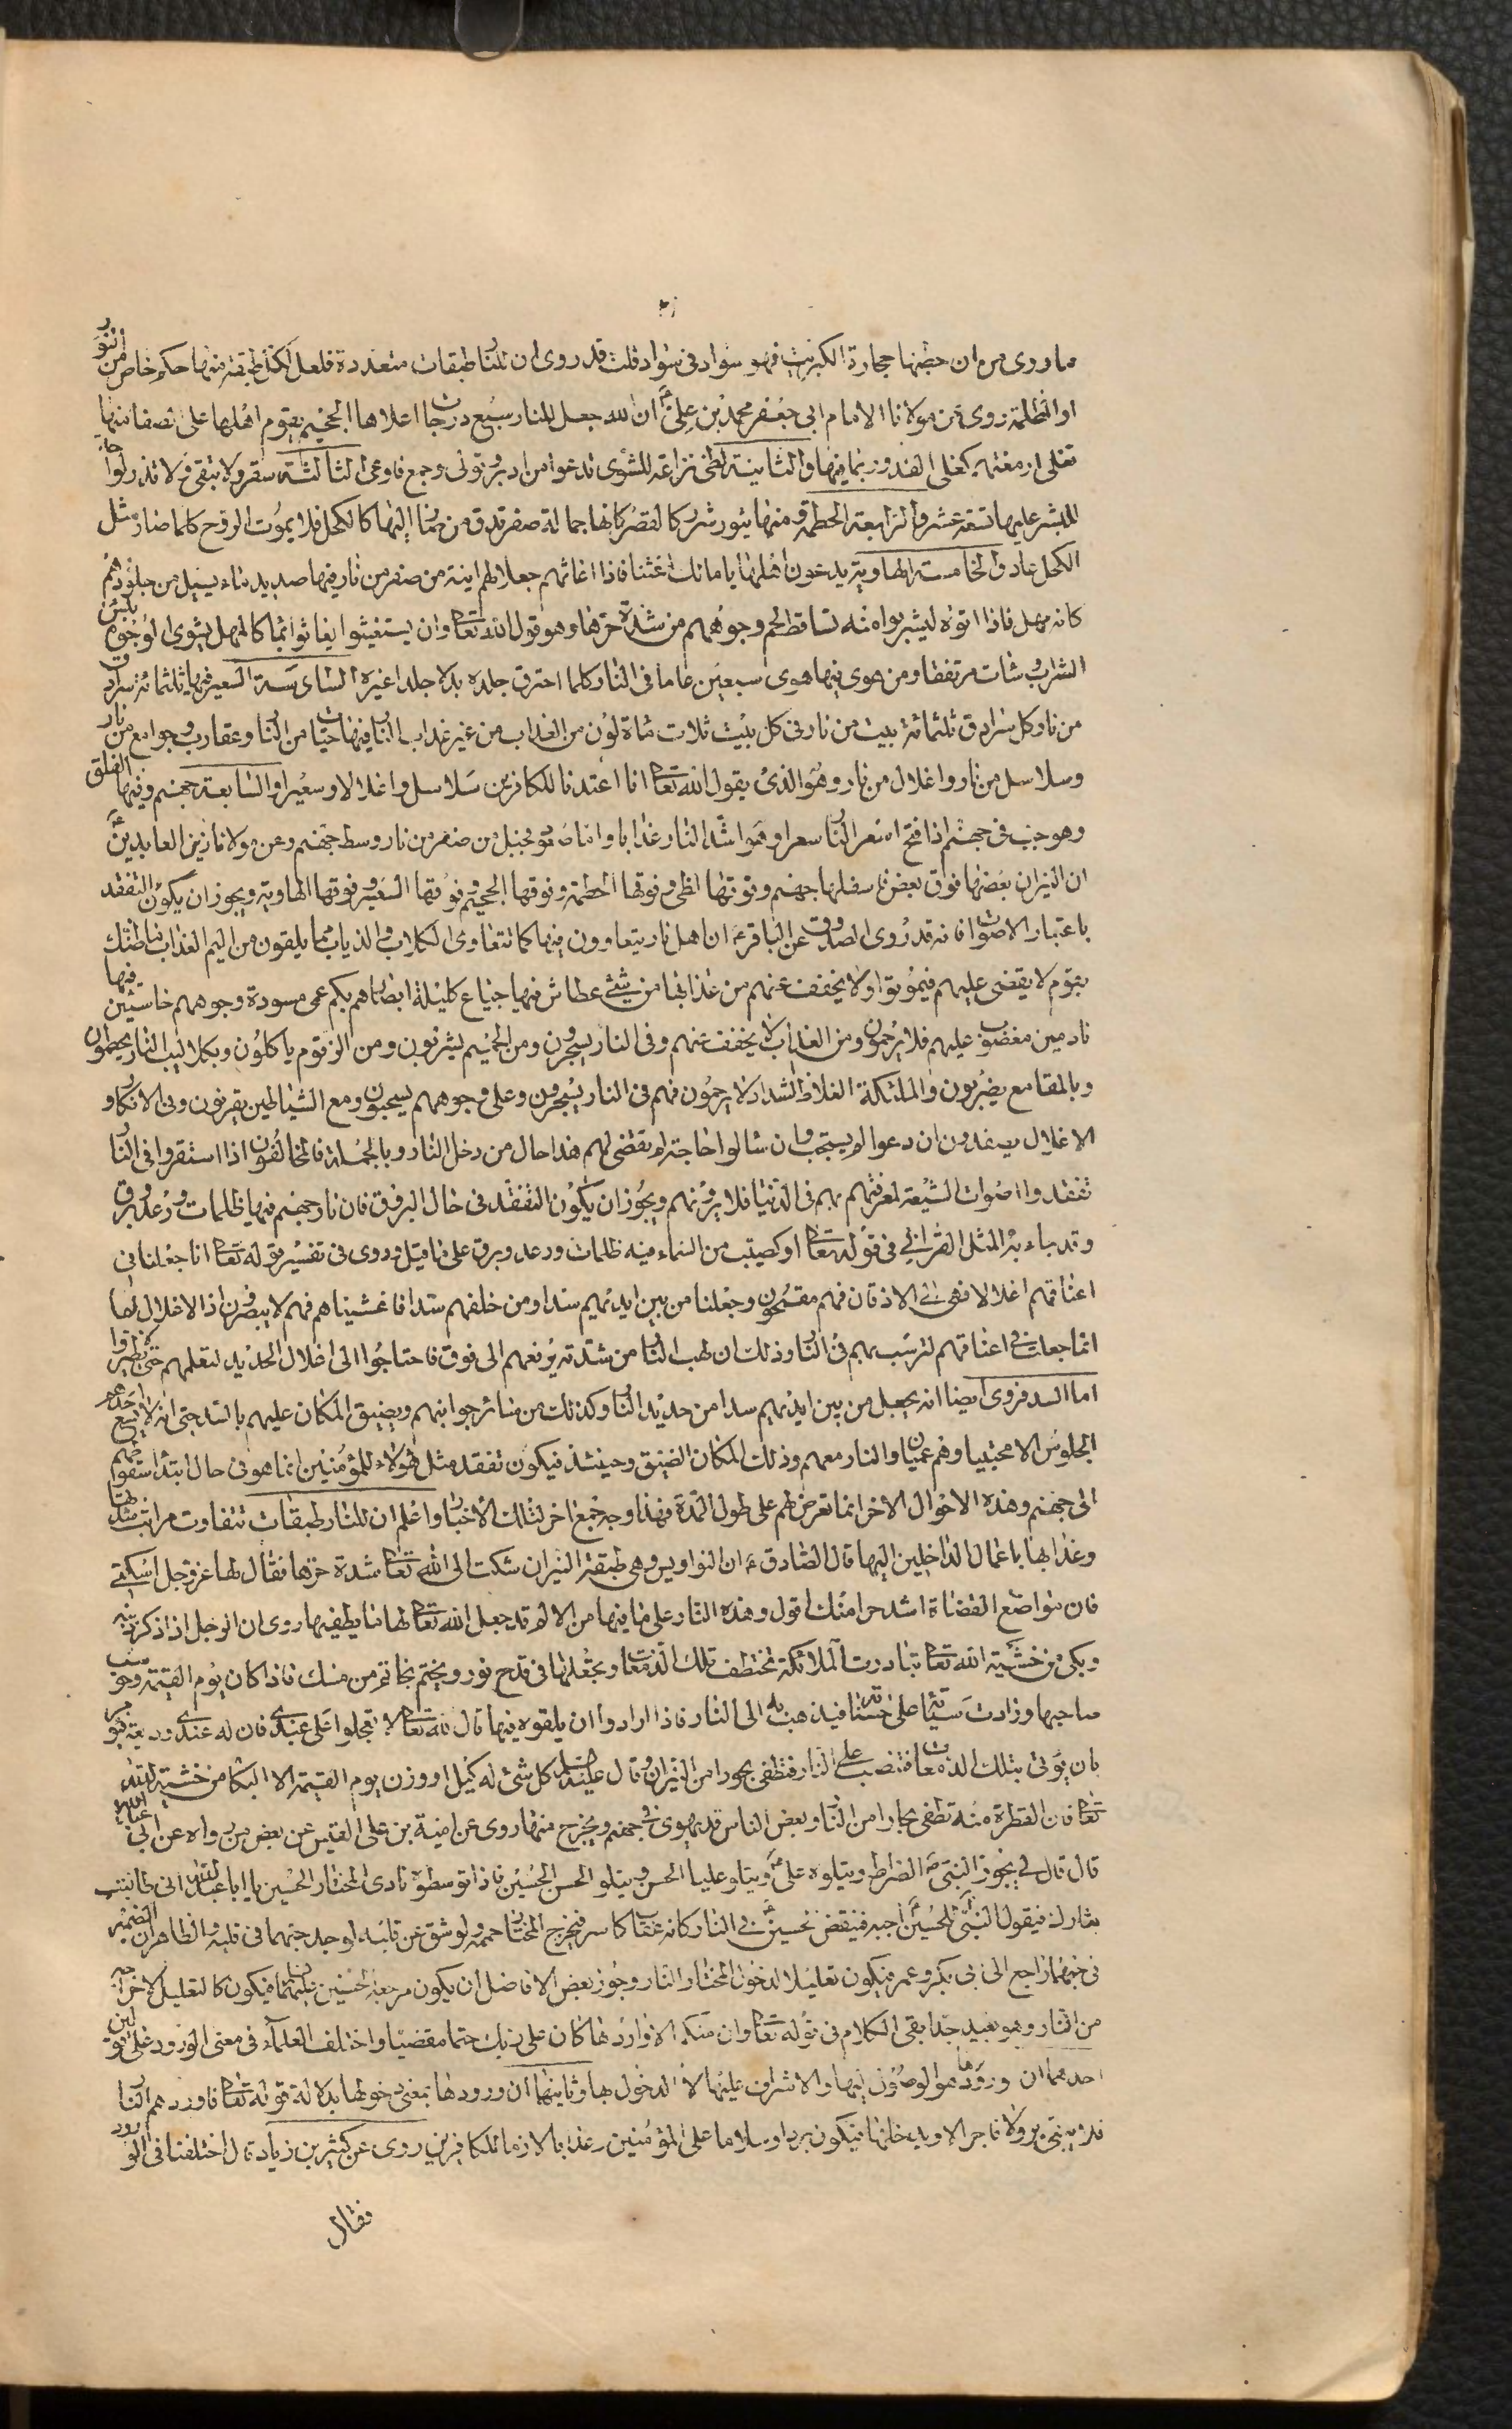 مما روى من ان حطبها حجارة الكبريت فهو سواد فى سواد قلت قد روى ان للنار طبقات متعددة فلعل لكل طبقة منها حكم خاص من النور
او الظلمة روى عن مولانا الامام ابى جعفر محمد بن على ع ان الله جعل للنار سبع درجات اعلاها الجحيم يقوم اهلها على الصفا منها
تغلى ادمغتهم كغلى القدور بما فيها والثانية لظى نزاعة للشوى تدعو من ادبر وتولى وجمع فاوعى الثالثة سقر لا تبقى ولا تذر لواحة
للبشر عليها تسعة عشر والرابعة الحطمة ومنها يثور شرر كالقصر كانها جمالة صفر تدق من صار اليها كالكحل فلا يموت الروح كلما صار مثل
الكحل عاد والخامسة الهاوية يدعون اهلها يا مالك اغثنا فاذا اغاثهم جعل لهم انية من صفر من نار فيها صديد ماء يسيل من جلودهم
كانه مهل فاذا اتوه ليشربوا منه تساقط لحم وجوههم من شدة حرها وهو قول الله تعالى وان يستغيثوا يغاثوا بماء كالمهل يشوى الوجوه بئس
الشراب وساءت مرتفقا ومن هوى فيها هوى سبعين عاما فى النار كلما احترق جلده بدل جلدا غيره السادسة السعير فيها ثلثمائة سرادق
من نار وكل سرادق ثلثمائة بيت من نار فى كل بيت ثلاث مأة لون من العذاب من غير عذاب النار فيها حيات من النار وعقارب وجوامع من نار
وسلاسل من نار واغلال من نار وهو الذى يقول الله تعالى انا اعتدنا للكافرين سلاسل واغلالا وسعيرا والسابعة جهنم وفيها الفلق
وهو جب فى جهنم اذا فتح اسعر النار سعرا وهو اشد النار عذابا واما صعود فجبل من صفر من نار وسط جهنم وعن مولانا زين العابدين ع
ان النيران بعضها فوق بعض فاسفلها جهنم وفوقها لظى وفوقها الحطمة وفوقها الجحيم وفوقها السعير وفوقها الهاوية ويجوز ان يكون التفقد
باعتبار الاصوات فانه قد روى الصدوق عن الباقر ع ان اهل نار يتعاوون فيها كما تتعاوى الكلاب والذياب مما يلقون من اليم العذاب ما ظنك
بقوم لا يقضى عليهم فيموتوا ولا يخفف عنهم من عذابها من شئ عطاش فيها جياع كليلة ابصارهم بكم عمى مسودة وجوههم خاسئين فيها
نادمين مغضوب عليهم فلا يرحمون ومن العذاب لا يخفف عنهم وفى النار يسجرون ومن الحميم يشربون ومن الزقوم ياكلون وبكلاليب النار يحطمون
وبالمقامع يضربون والملئكة الغلاظ الشداد لا يرحمون فهم فى النار يسجرون وعلى وجوههم يسحبون ومع الشياطين يقرنون وفى الانكال و
الاغلال يصفدون ان دعوا لم يستجب وان سالوا حاجة لم تقض لهم هذا حال من دخل النار وبالجملة فالمخالفون اذا استقروا فى النار
تفقدوا اصوات الشيعة لمعرفتهم بهم فى الدنيا فلا يرونهم ويجوز ان يكون التفقد فى حال البروق فان نار جهنم فيها ظلمات ورعد وبرق
وقد جاء به المثل القرانى فى قوله تعالى او كصيب من السماء فيه ظلمات ورعد وبرق على ما قيل وروى فى تفسير قوله تعالى انا جعلنا فى
اعناقهم اغلالا فهى الى الاذقان فهم مقمحون وجعلنا من بين ايديهم سدا ومن خلفهم سدا فاغشيناهم فهم لا يبصرون ان الاغلال لها
انما جعلت فى اعناقهم لترسب بهم فى النار وذلك ان لهب النار من شدته يرفعهم الى فوق فاحتاجوا الى اغلال الحديد لتعلهم
اما السد فروى ايضا انه يجعل من بين ايديهم سدا من حديد النار وكذلك من سائر جوانبهم ويضيق المكان عليهم بالسد حتى انه لا يسع احدهم
الجلوس الا محتبيا وهم عميان والنار معهم وذلك المكان الضيق وحينئذ فيكون تفقد مثل هؤلاء للمؤمنين انما هو فى حال ابتداء سوقهم
الى جهنم وهذه الاحوال الاخر انما تعرض لهم على طول المدة فهذا وجه جمع اخر لتلك الاخبار واعلم ان للنار طبقات تتفاوت مراتب شدتها
وعذابها باعمال الداخلين اليها قال الصادق ع ان النواويس وهى طبقة النيران شكت الى الله تعالى شدة حرها فقال لها عز وجل اسكتى
فان مواضع القضاة اشد حرا منك اقول وهذه النار على ما فيها من الالم قد جعل الله تعالى لها ما يطفيها روى ان الرجل اذا ذكر ذنبه
وبكى من خشية الله تعالى تبادرت الملائكة تختطف تلك الدمعات وتجعلها فى قدح نور ويختم بخاتم من مسك فاذا كان يوم القيمة وحوسب
صاحبها وزادت سيئاته على حسناته فيذهب به الى النار فاذا ارادوا ان يلقوه فيها قال الله تعالى لا تعجلوا على عبدى فان له عندى وديعة فيؤمر
بان يؤتى بتلك الدمعات فتصب على النار فتطفى بحورا من النيران وقال عليه السلام كل شئ له كيل او وزن يوم القيمة الا البكاء من خشية الله
تعالى فان القطرة منه تطفى بحارا من النار وبعض الناس قد يهوى فى جهنم ويخرج منها روى عن امية بن على القيسى عن بعض من رواه عن ابى عبد الله
قال قال لى يجوز النبى ص الصراط ويتلوه على ع ويتلو عليا الحسن ويتلو الحسن الحسين فاذا توسطوه نادى المختار الحسين يا ابا عبد الله انى طلبت
بثارك فيقول النبى للحسين ع اجبه فينقض الحسين فى النار كانه عقاب كاسر فيخرج المختار حممة ولو شق عن قلبه لوجد حبهما فى قلبه والظاهر ان الضمير
فى حبهما راجع الى ابى بكر وعمر فيكون تعليلا لدخول المختار النار وجوز بعض الافاضل ان يكون مرجعه الحسنين عليهما السلام فيكون كالتعليل لاخراجه
من النار وهو بعيد جدا بقى الكلام فى قوله تعالى وان منكم الا واردها كان على ربك حتما مقضيا واختلف العلماء فى معنى الورود على قولين
احدهما ان ورودها هو الوصول اليها والاشراف عليها لا الدخول بها وثانيها ان ورودها بمعنى دخولها بدلالة قوله تعالى فاوردهم النار
فلا يبقى بر ولا فاجر الا ويدخلها فيكون بردا وسلاما على المؤمنين وعذابا لازما للكافرين روى عن كثير بن زياد قال اختلفنا فى الورود
فقال